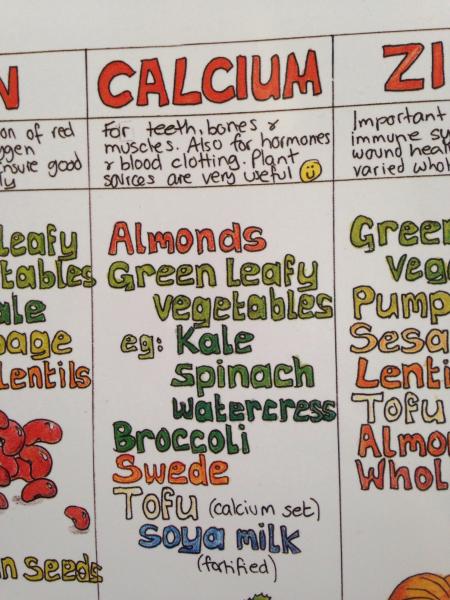 N
on of red
ygen
nsure good
ly
leafy
tables
ale
bage
lentils
n seeds
CALCIUM
For teeth, bones &
muscles. Also for hormones
& blood clotting. Plant
sources are very useful
Almonds
Green Leafy
vegetables
eg: Kale
spinach
watercress
Broccoli
Swede
Tofu (calcium set)
soya milk
(fortified)
ZI
Important
immune sy
wound heal
varied whol
Green
vege
Pump
Sesa
Lenti
Tofu
Almo
Whol